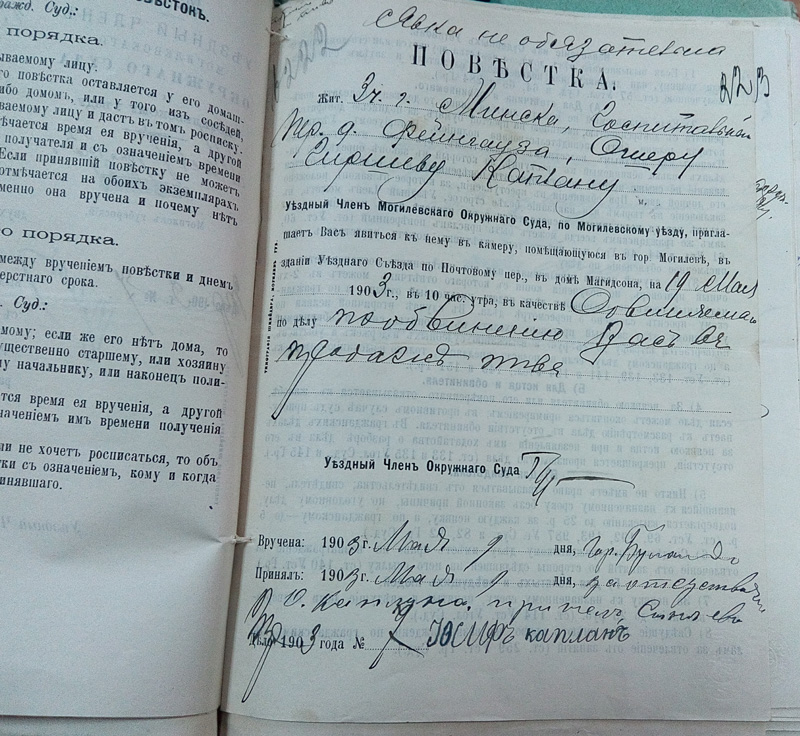 ѢСТОК.
ражд. Суд.:
порядка.
ываемому лицу;
го повѣстка оставляется у его домаш-
ибо домомъ, или у того изъ сосѣдей,
ваемому лицу и дастъ въ томъ росписку.
ѣчается время ея врученія, а другой
получателя и съ означеніемъ времени
Если принявшій повѣстку не можетъ
отмѣчается на обоихъ экземплярахъ
менно она вручена и почему нѣтъ
го порядка.
между врученіемъ повѣстки и днемъ
верстнаго срока.
. Суд.:
мому; если же его нѣтъ дома, то
ущественно старшему, или хозяину
му начальнику, или наконецъ поли-
тся время ея врученія, а другой
наченіемъ имъ времени полученія
ли не хочетъ росписаться, то объ
тки съ означеніемъ, кому и когда
инявшаго.
Явка не обязательна
222
ПОВѢСТКА.
223
Жит. 3 ч. г. Минска, Госпитальной
д. Фейнгауза, Ошеру
Гиршеву Каплану
Уѣздный Членъ Могилевскаго Окружнаго Суда, по Могилевскому уѣзду, пригла-
шаетъ Васъ явиться къ нему въ камеру, помѣщающуюся въ гор. Могилевѣ, въ
зданіи Уѣзднаго Съѣзда по Почтовому пер., въ домѣ Магидсона, на 19 Мая
1903 г., въ 10 час. утра, въ качествѣ Обвиняемаго
по дѣлу по обвиненію Васъ въ
продажѣ
Уѣздный Членъ Окружнаго Суда
Вручена: 1903 г. Мая 9 дня,
Принялъ: 1903 г. Мая 9 дня, за отсутствіемъ
О. Каплана принялъ
Дѣло 1903 года №
Юсифъ капланъ